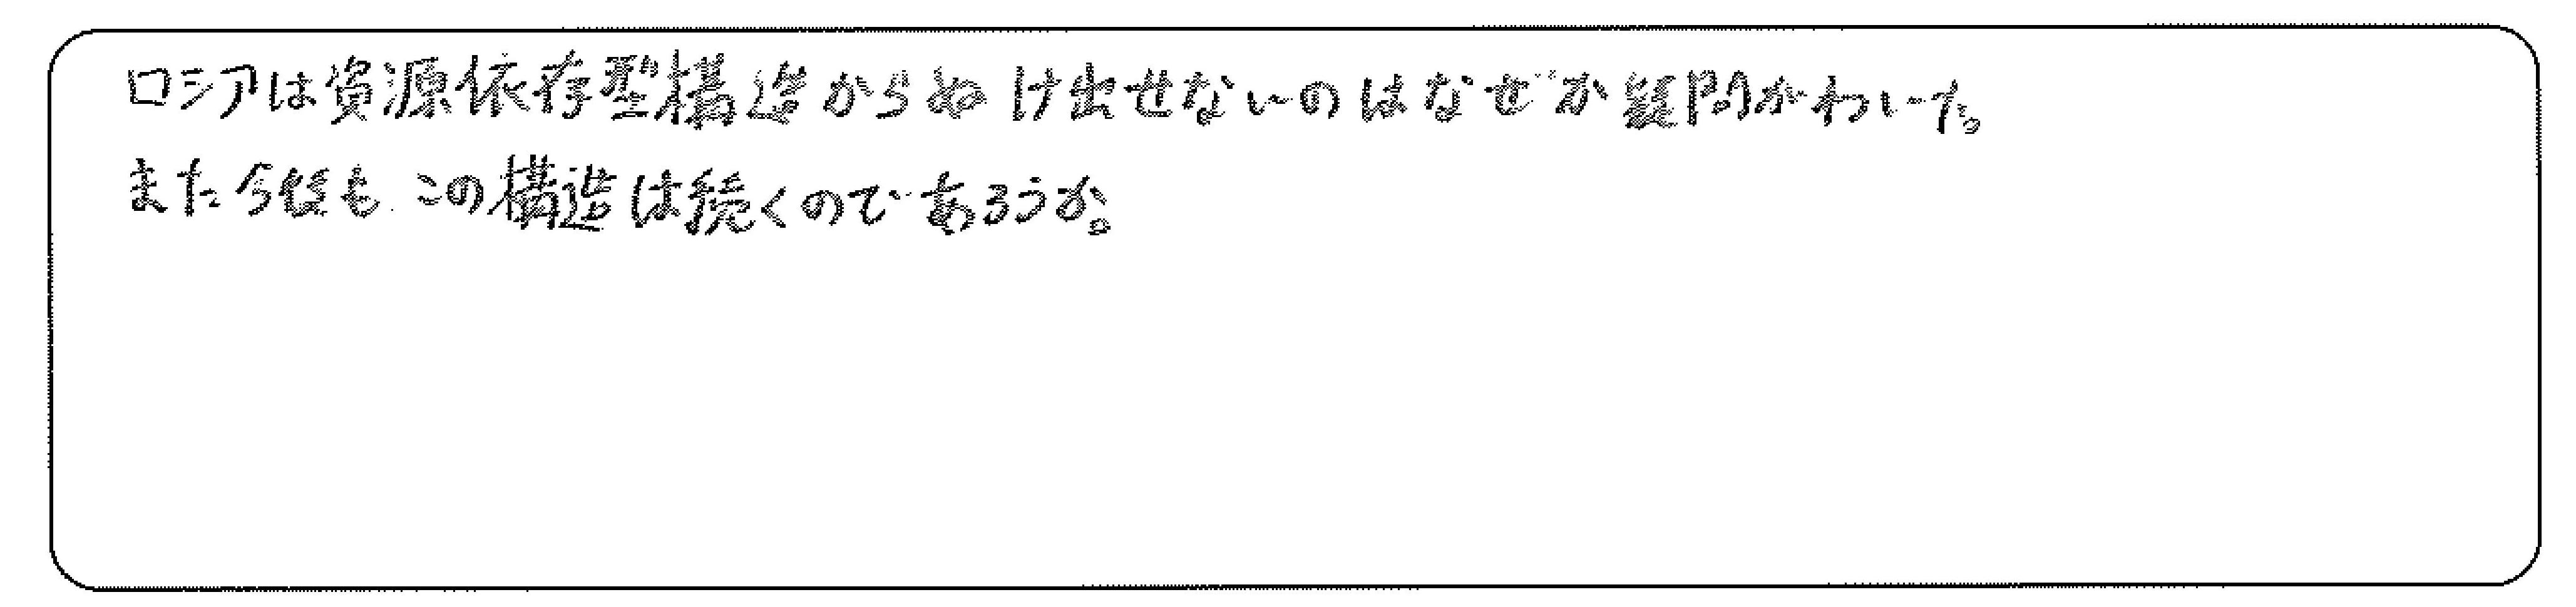 ロシアは資源依存型構造からぬけ出せないのはなぜか疑問がわいた。
また今後もこの構造は続くのであろうか。